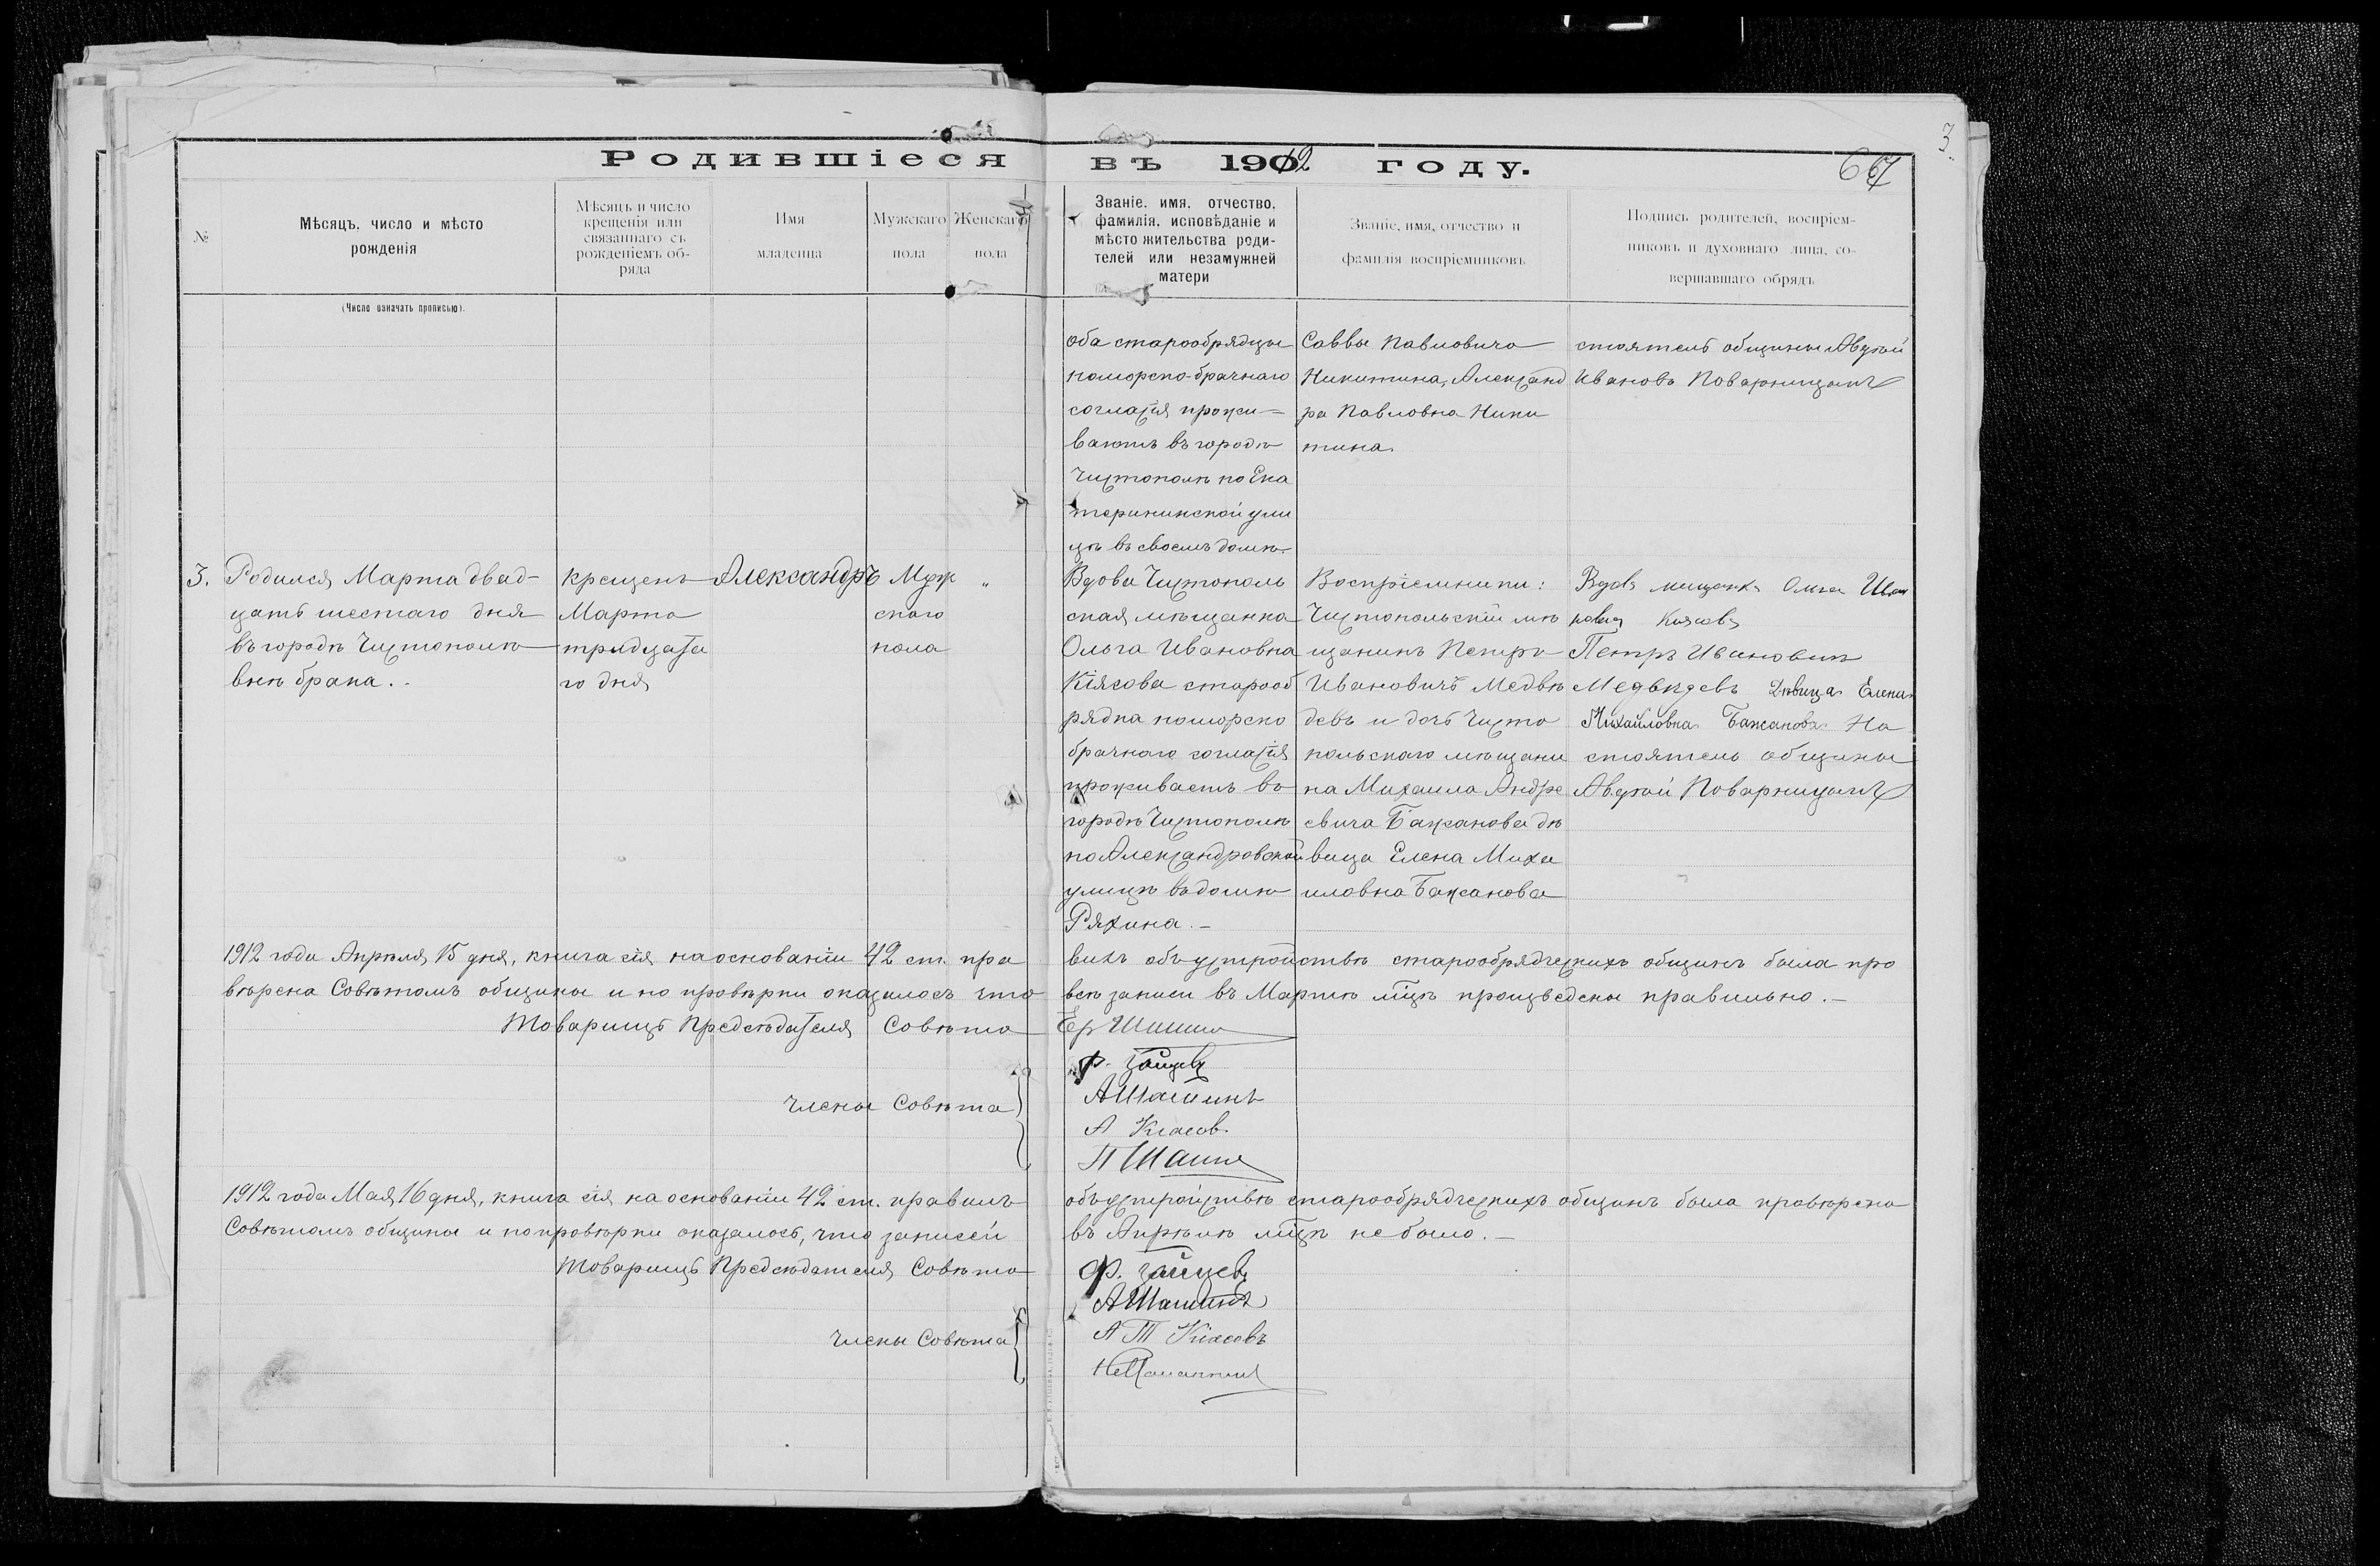 3.
Родившіеся въ 1912 году.
667
№
Мѣсяцъ, число и мѣсто
рожденія
Мѣсяцъ и число
крещенія или
связаннаго съ
рожденіемъ об-
ряда
Имя
младенца
Мужскаго
пола
Женскаго
пола
Званіе, имя, отчество,
фамилія, исповѣданіе и
мѣсто жительства роди-
телей или незамужней
матери
Званіе, имя, отчество и
фамилія воспріемниковъ
Подпись родителей, воспріем-
никовъ и духовнаго лица, со-
вершавшаго обрядъ
(Число означать прописью).
оба старообрядцы
поморско-брачнаго
согласія прожи-
ваютъ въ городѣ
Чистополѣ по Ека
терининской ули
цѣ въ своемъ домѣ
Саввы Павловича
Никитина, Александ
ра Павловна Ники
тина.
стоятель общины Авдтой
Ивановъ Поварницынъ
3.
Родился, Марта двад-
цать шестаго дня
въ городѣ Чистополѣ
внѣ брака.-
крещенъ
Марта
тридцата
го дня
Александръ
Муж
скаго
пола
„
Вдова Чистополь
ская мѣщанка
Ольга Ивановна
Кіясова старооб
рядка поморско
брачнаго согласія
проживаетъ въ
городѣ Чистополѣ
по Александровской
улицѣ въ домѣ
Ряхина.-
Воспріемники:
Чистопольскій мѣ
щанинъ Петръ
Ивановичъ Медвѣ
девъ и дочь Чисто
польскаго мѣщани
на Михаила Андре
евича Бажанова дѣ
вица Елена Миха
иловна Бажанова
Вдова мещанка Ольга Иван
новна Киясова
Петръ Ивановичъ
Медвѣдевъ Дѣвица Елена
Михайловна Бажанова На
стоятель общины
Авдтой Поварницынъ
1912 года Апрѣля 15 дня, книга сія на основаніи 42 ст. пра вилъ объ устройствѣ старообрядческихъ общинъ была про
вѣрена Совѣтомъ общины и по провѣрки оказалось что всѣ записи въ Мартѣ мѣцѣ произведены правильно.-
Товарищъ Предсѣдателя Совѣта Ер Шашин
Члены Совѣта
Ф. Зайцевъ
А Шашинъ
А Кіасов.
П Шашин
1912 года Мая 16 дня, книга сія на основаніи 42 ст. правилъ объ устройствѣ старообрядческихъ общинъ была провѣрена
Совѣтомъ общины и по провѣрки оказалось, что записей въ Апрѣлѣ мѣцѣ не было.-
Товарищъ Предсѣдателя Совѣта Ф. Зайцевъ
Члены Совѣта
А Шашинъ
А Т Кіясовъ